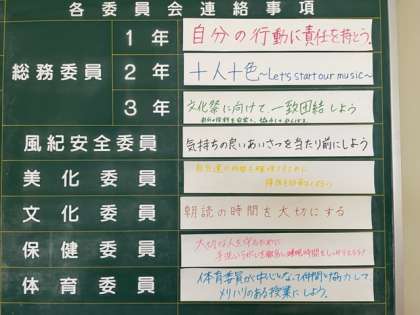 各委員会連絡事項
総務委員
1年 自分の行動に責任を持とう。
2年 十人十色～Let's start our music～
3年 文化祭に向けて、一致団結しよう
風紀安全委員 気持ちの良いあいさつを当たり前にしよう
美化委員
文化委員 朝読の時間を大切にする
保健委員 大切な人を守るために
体育委員 体育委員が中心となって仲間と協力して
メリハリのある授業にしよう。